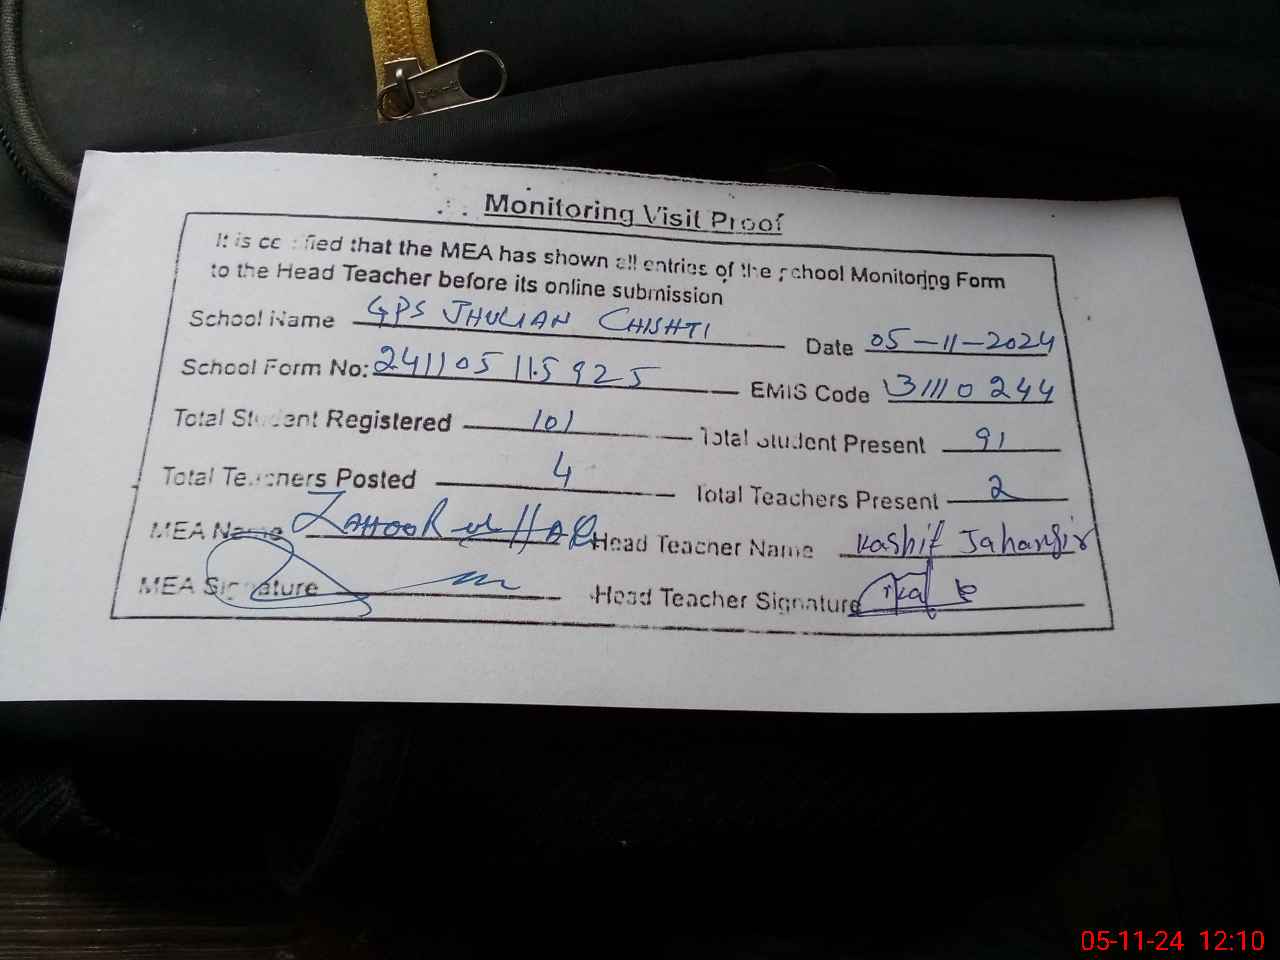 Monitoring Visit Proof
It is certified that the MEA has shown all entries of the school Monitoring Form
to the Head Teacher before its online submission
School Name GPS JHULIAN CHISHTI Date 05-11-2024
School Form No: 241105115925 EMIS Code 31110244
Total Student Registered 101 Total Student Present 91
Total Teachers Posted 4 Total Teachers Present 2
MEA Name ZAHOOR ul HAQ Head Teacher Name Kashif Jahangir
MEA Signature Head Teacher Signature
05-11-24 12:10